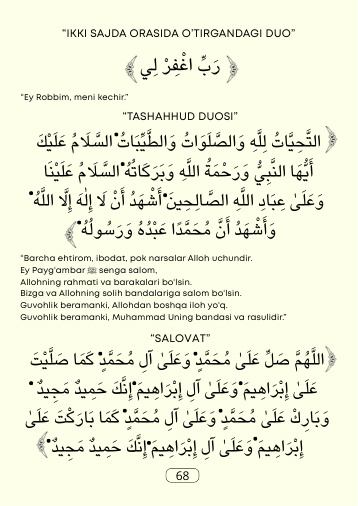 “IKKI SAJDA ORASIDA O’TIRGANDAGI DUO”
﴿رَبِّ اغْفِرْ لِي﴾
“Ey Robbim, meni kechir.”
“TASHAHHUD DUOSI”
﴿التَّحِيَّاتُ لِلَّهِ وَالصَّلَوَاتُ وَالطَّيِّبَاتُ • السَّلَامُ عَلَيْكَ
أَيُّهَا النَّبِيُّ وَرَحْمَةُ اللَّهِ وَبَرَكَاتُهُ • السَّلَامُ عَلَيْنَا
وَعَلَىٰ عِبَادِ اللَّهِ الصَّالِحِينَ • أَشْهَدُ أَنْ لَا إِلَٰهَ إِلَّا اللَّهُ •
وَأَشْهَدُ أَنَّ مُحَمَّدًا عَبْدُهُ وَرَسُولُهُ •﴾
“Barcha ehtirom, ibodat, pok narsalar Alloh uchundir.
Ey Payg‘ambar ﷺ senga salom,
Allohning rahmati va barakalari bo‘lsin.
Bizga va Allohning solih bandalariga salom bo‘lsin.
Guvohlik beramanki, Allohdan boshqa iloh yo‘q.
Guvohlik beramanki, Muhammad Uning bandasi va rasulidir.”
“SALOVAT”
﴿اللَّهُمَّ صَلِّ عَلَىٰ مُحَمَّدٍ • وَعَلَىٰ آلِ مُحَمَّدٍ • كَمَا صَلَّيْتَ
عَلَىٰ إِبْرَاهِيمَ • وَعَلَىٰ آلِ إِبْرَاهِيمَ • إِنَّكَ حَمِيدٌ مَجِيدٌ •
وَبَارِكْ عَلَىٰ مُحَمَّدٍ • وَعَلَىٰ آلِ مُحَمَّدٍ • كَمَا بَارَكْتَ عَلَىٰ
إِبْرَاهِيمَ • وَعَلَىٰ آلِ إِبْرَاهِيمَ • إِنَّكَ حَمِيدٌ مَجِيدٌ •﴾
68